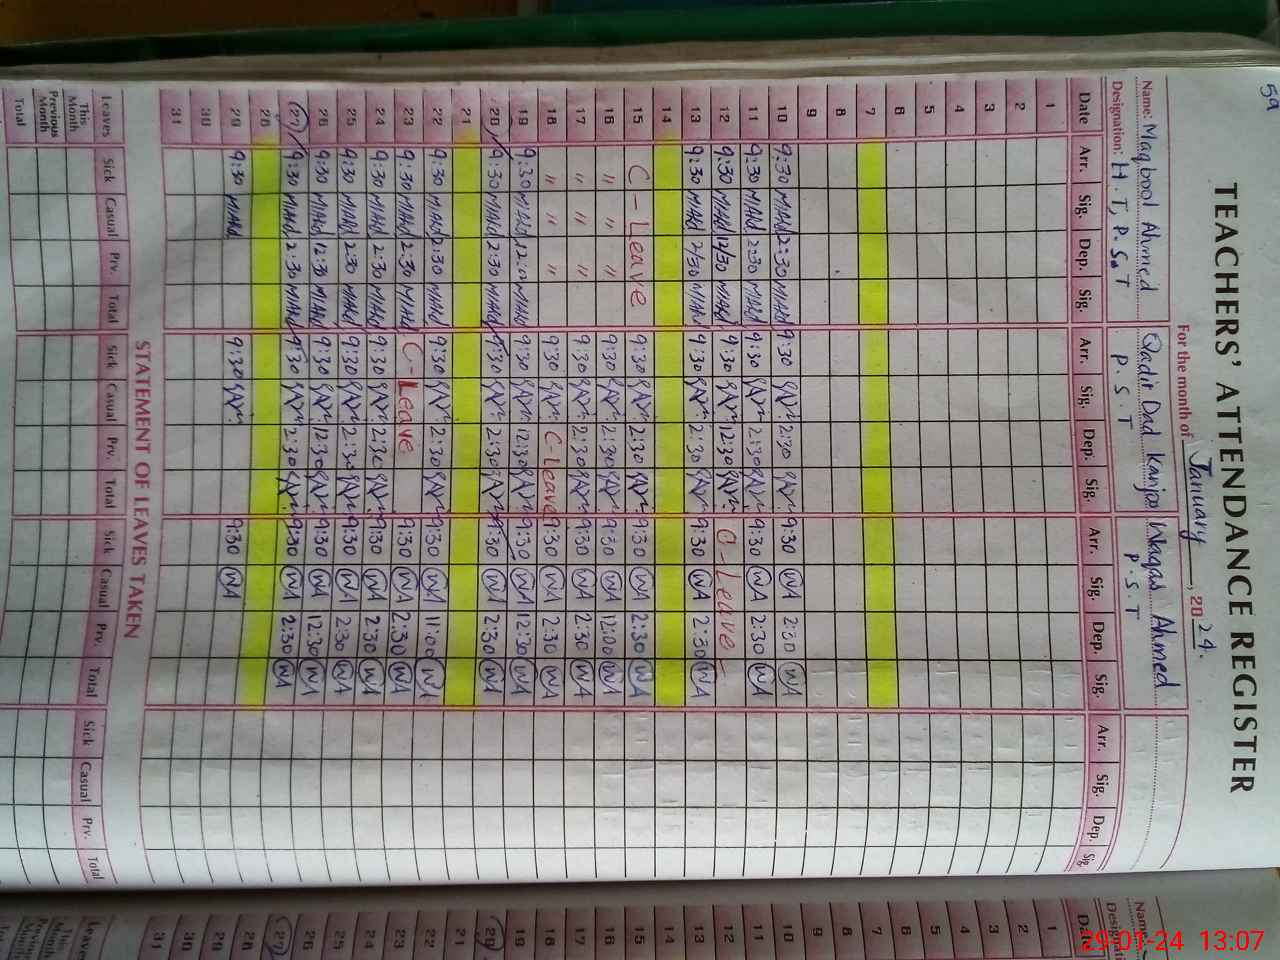 59
TEACHERS' ATTENDANCE REGISTER
For the month of January, 2024.
Name: Maqbool Ahmed Qadir Dad Kanjoo Waqas Ahmed
Designation: H.T, P.S.T P.S.T P.S.T
Date Arr. Sig. Dep. Sig. Arr. Sig. Dep. Sig. Arr. Sig. Dep. Sig. Arr. Sig. Dep. Sig.
1
2
3
4
5
6
7
8
9
10 9:30 MAhd 2:30 MAhd 9:30 2:30 9:30 WA 2:30 WA
11 9:30 MAhd 2:30 MAhd 9:30 2:30 9:30 WA 2:30 WA
12 9:30 MAhd 12/30 MAhd 9:30 12:30 C-Leave-
13 9:30 MAhd 2/30 MAhd 9:30 2:30 9:30 WA 2:30 WA
14
15 C-Leave 9:30 2:30 9:30 WA 2:30 WA
16 " " " 9:30 2:30 9:30 WA 12:00 WA
17 " " " 9:30 2:30 9:30 WA 2:30 WA
18 " " " 9:30 C-Leave 9:30 WA 2:30 WA
19 9:30 MAhd MAhd 9:30 12:30 9:30 WA 12:30 WA
20 9:30 MAhd 2:30 MAhd 9:30 2:30 9:30 WA 2:30 WA
21
22 9:30 MAhd 2:30 MAhd 9:30 2:30 9:30 WA 11:00 WA
23 9:30 MAhd 2:30 MAhd C-Leave 9:30 WA 2:30 WA
24 9:30 MAhd 2:30 MAhd 9:30 2:30 9:30 WA 2:30 WA
25 9:30 MAhd 2:30 MAhd 9:30 2:30 9:30 WA 2:30 WA
26 9:30 MAhd 12:30 MAhd 9:30 12:30 9:30 WA 12:30 WA
27 9:30 MAhd 2:30 MAhd 9:30 2:30 9:30 WA 2:30 WA
28
29 9:30 MAhd 9:30 9:30 WA
30
31
STATEMENT OF LEAVES TAKEN
Leaves Sick Casual Prv. Total Sick Casual Prv. Total Sick Casual Prv. Total Sick Casual Prv. Total
This Month
Previous Month
Total
29-01-24 13:07